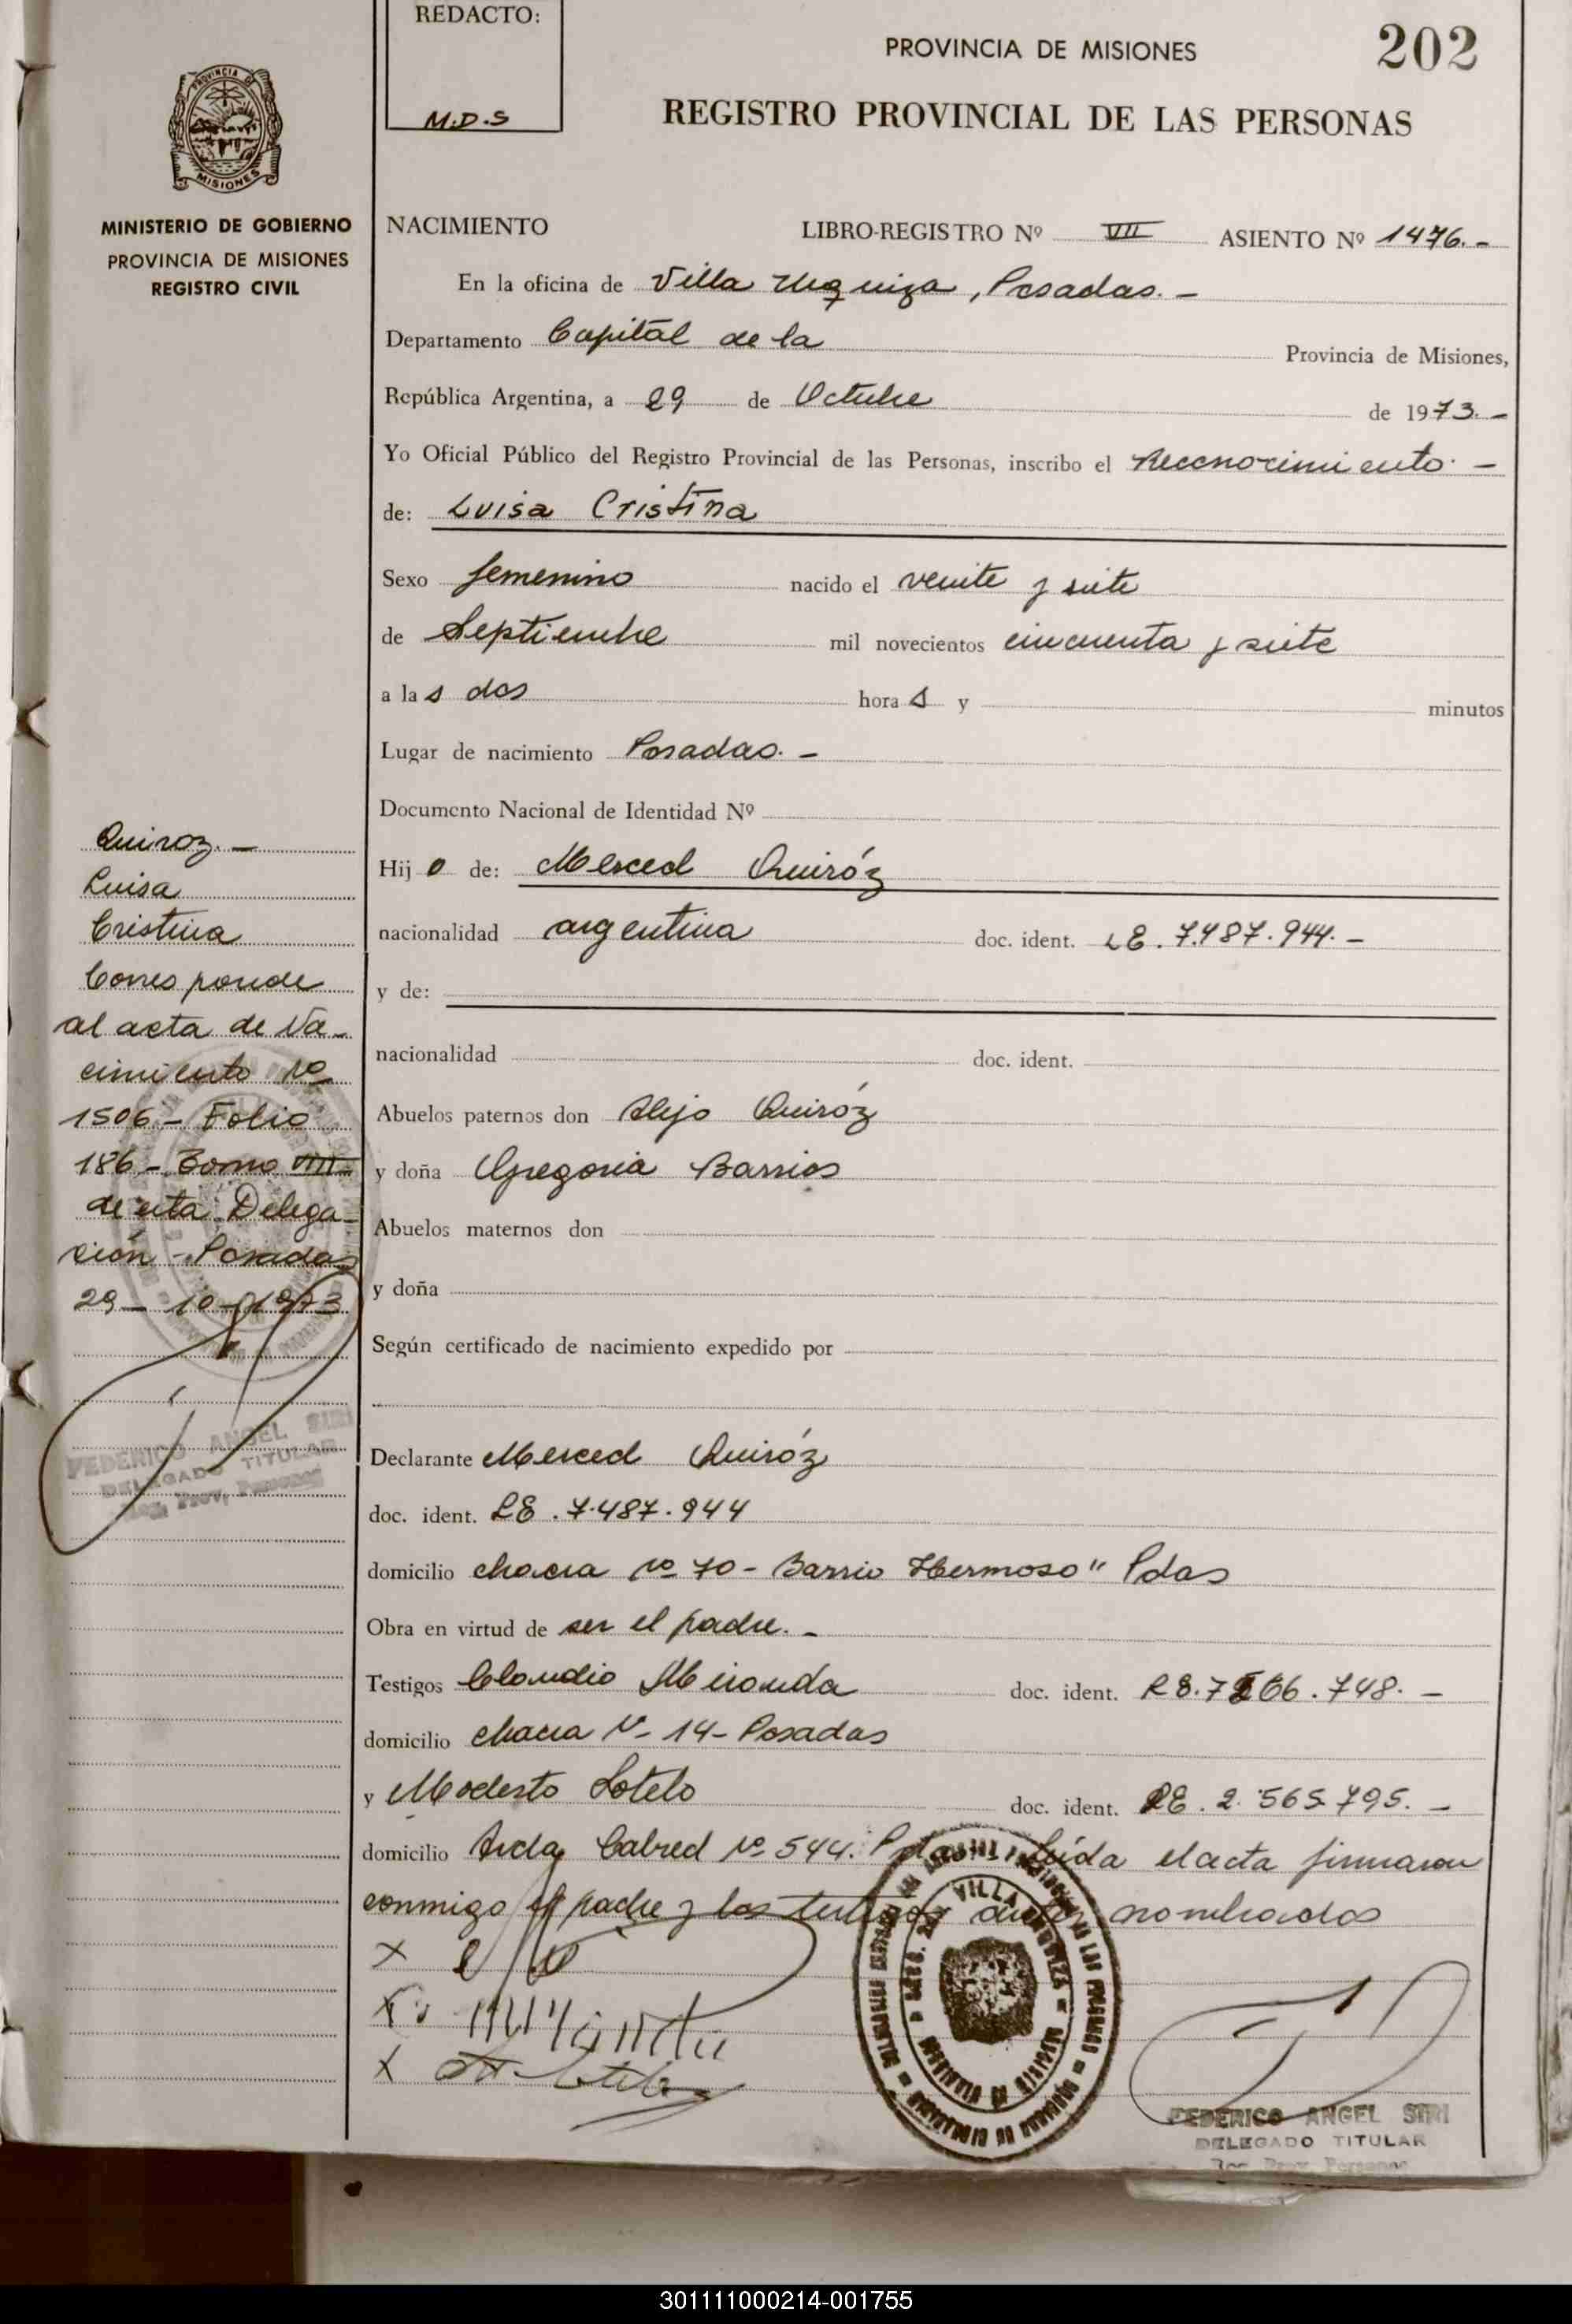 REDACTO:
M.D.S
PROVINCIA DE MISIONES
202
REGISTRO PROVINCIAL DE LAS PERSONAS
PROVINCIA DE
MISIONES
MINISTERIO DE GOBIERNO
PROVINCIA DE MISIONES
REGISTRO CIVIL
NACIMIENTO LIBRO-REGISTRO Nº VII ASIENTO Nº 1476.-
En la oficina de Villa Urquiza, Posadas.-
Departamento Capital de la Provincia de Misiones,
República Argentina, a 29 de Octubre de 1973.-
Yo Oficial Público del Registro Provincial de las Personas, inscribo el Reconocimiento.-
de: Luisa Cristina
Sexo femenino nacido el veinte y siete
de Septiembre mil novecientos cincuenta y siete
a las dos horas y minutos
Lugar de nacimiento Posadas.-
Documento Nacional de Identidad Nº
Hijo de: Merced Quiróz
nacionalidad argentina doc. ident. LE. 7.487.944.-
y de:
nacionalidad doc. ident.
Abuelos paternos don Alejo Quiróz
y doña Gregoria Barrios
Abuelos maternos don
y doña
Según certificado de nacimiento expedido por
Declarante Merced Quiróz
doc. ident. LE. 7.487.944
domicilio chacra Nº 70 - Barrio Hermoso" Pdas
Obra en virtud de ser el padre.-
Testigos Claudio Miranda doc. ident.
domicilio chacra Nº 14 - Posadas
y Modesto Sotelo doc. ident. LE. 2.565.795.-
domicilio Avda Cabred Nº 544. Pdas. Leída el acta firmaron
conmigo el padre y los testigos antes nombrados
Quiroz.-
Luisa
Cristina
Corresponde
al acta de Na-
cimiento Nº
1506 - Folio
186 - Tomo VIII
de esta Delega-
ción - Posadas
29 - 10 - 1973
FEDERICO ANGEL SIRI
DELEGADO TITULAR
Reg. Prov. Personas
X
X
X
VILLA URQUIZA
FEDERICO ANGEL SIRI
DELEGADO TITULAR
Reg. Prov. Personas
301111000214-001755